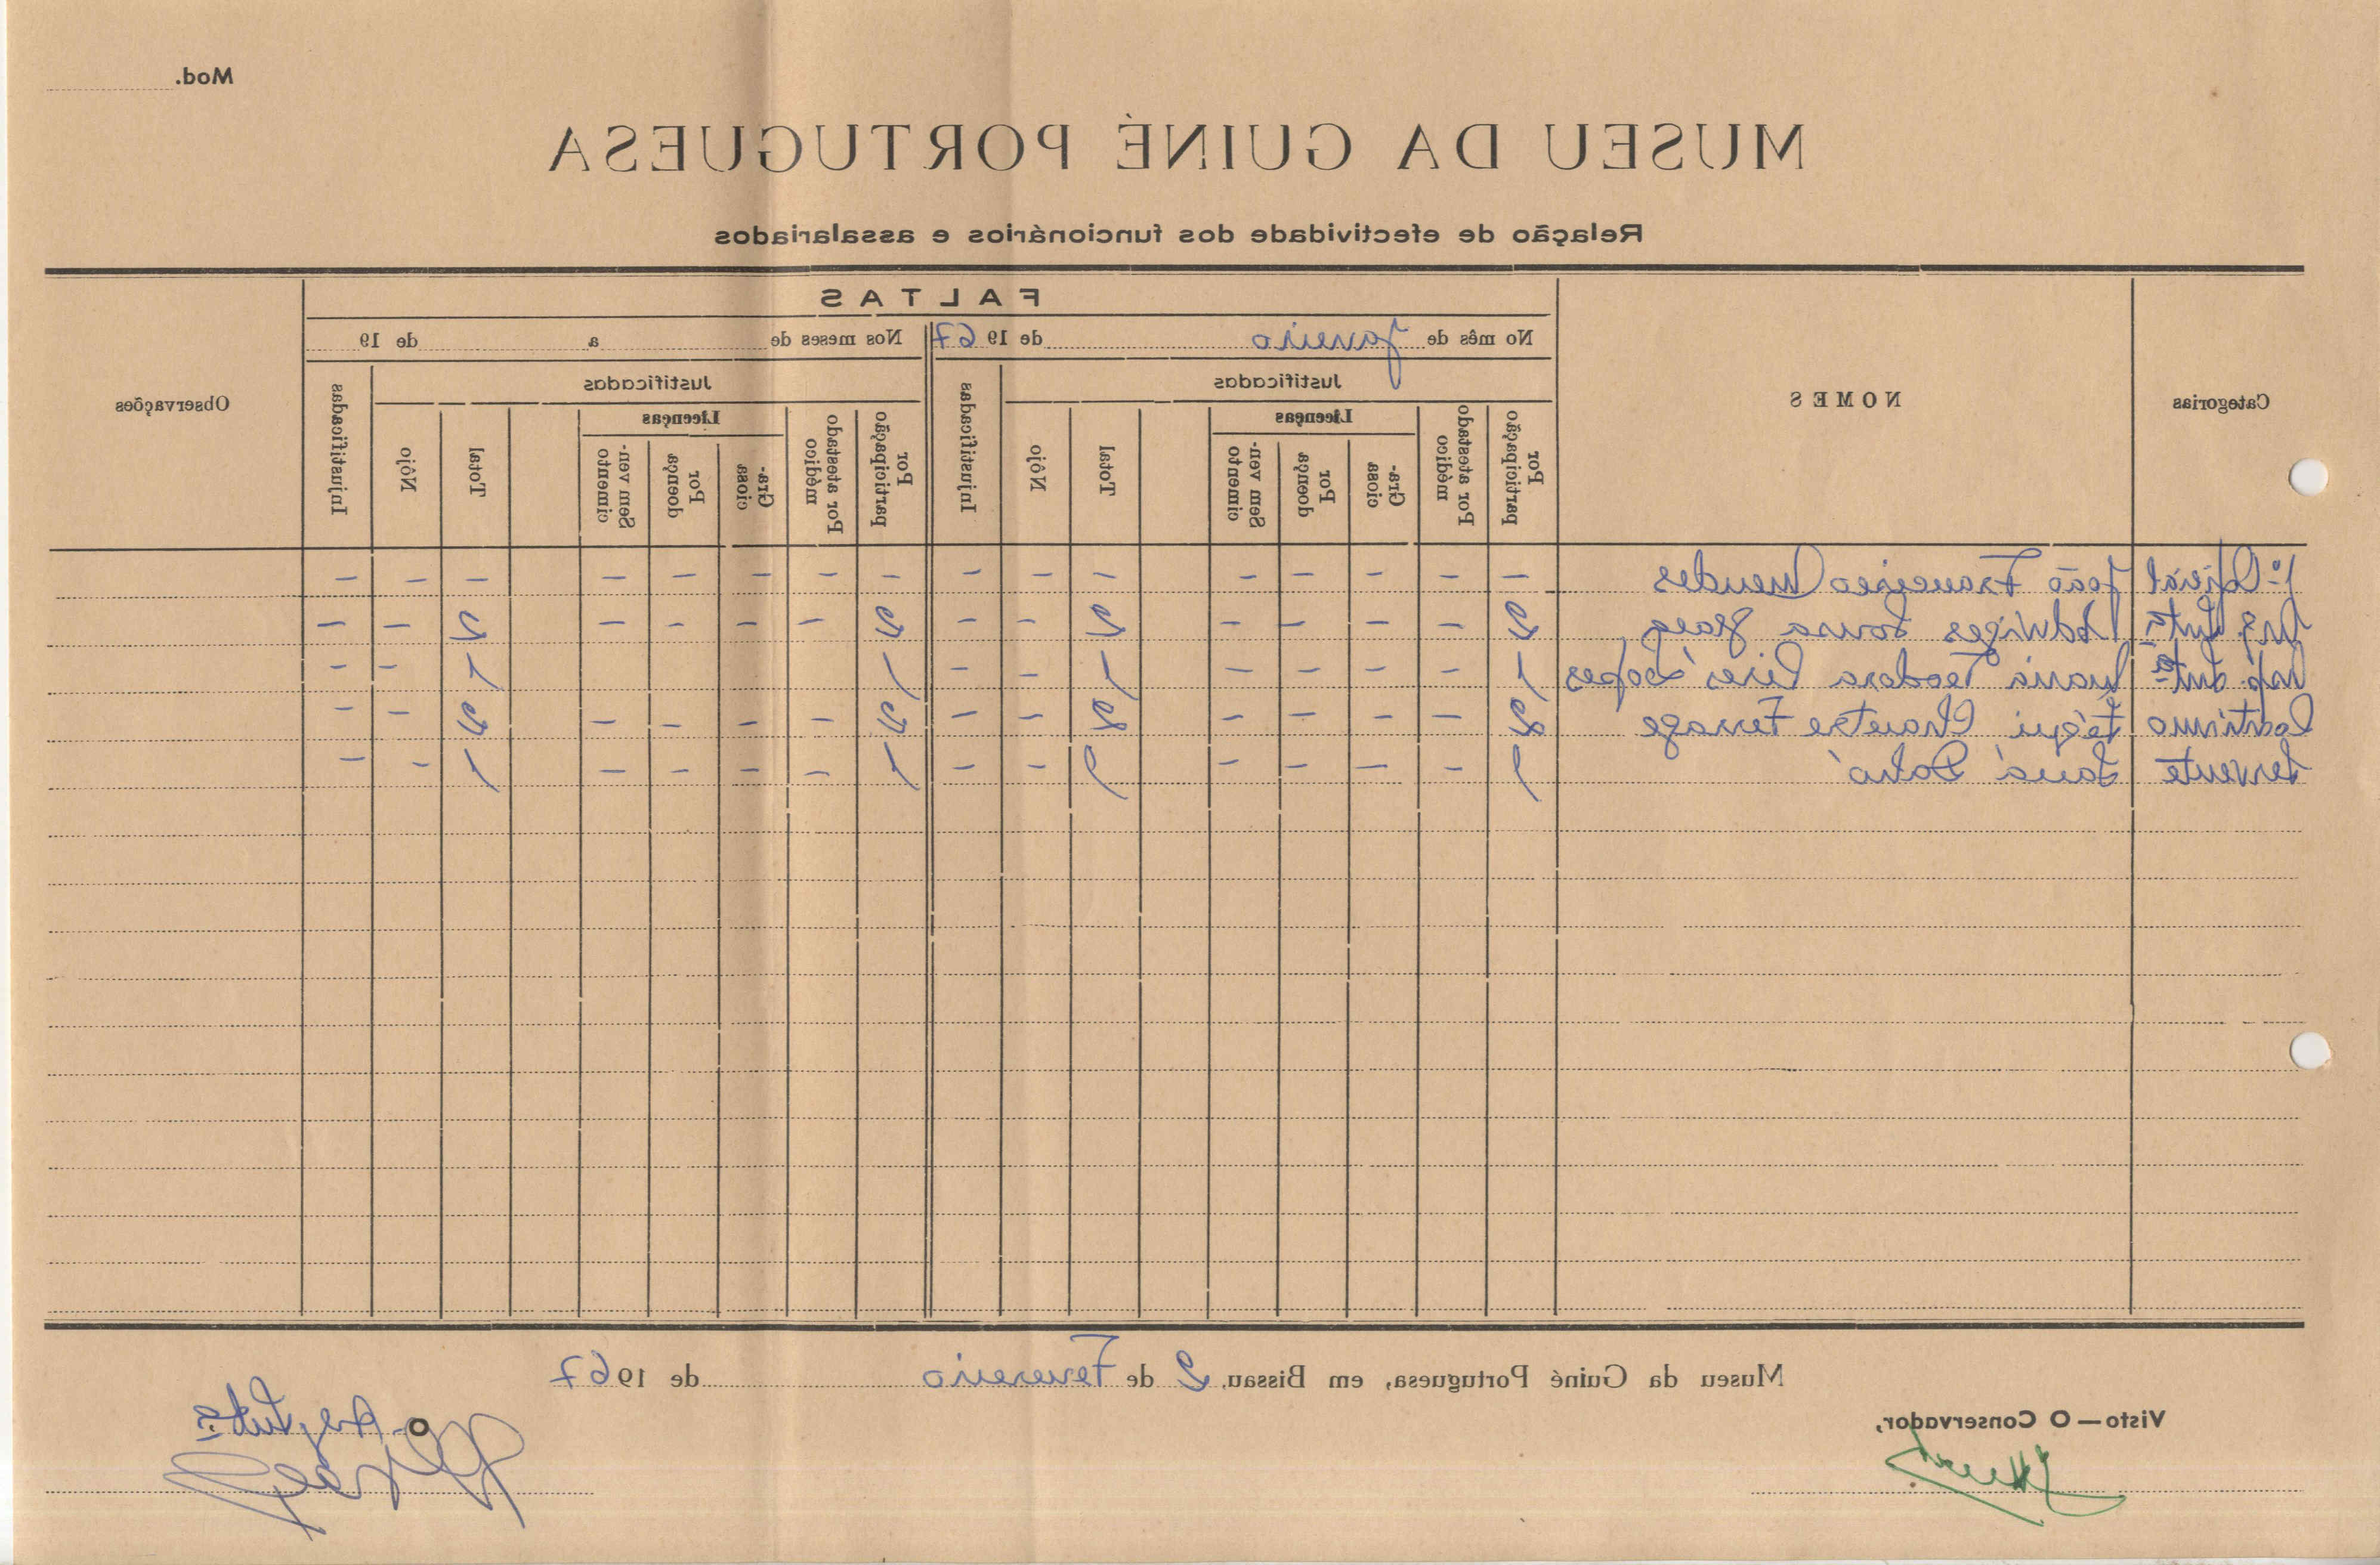 Mod.
MUSEU DA GUINÉ PORTUGUESA
Relação de efectividade dos funcionários e assalariados
Categorias NOMES FALTAS Observações
No mês de Janeiro de 1967 Nos meses de a de 19
Justificadas Injustificadas Justificadas Injustificadas
Por participação Por atestado médico Licenças Total Nôjo Por participação Por atestado médico Licenças Total Nôjo
Gra-ciosa Por doença Sem ven-cimento Gra-ciosa Por doença Sem ven-cimento
1.º Oficial João Francisco Mendes - - - - - - - - - - - - - - - -
Intª Edwiges Sousa Graça 2 - - - - 2 - - 2 - - - - 2 - -
Intª Maria Teodora Pires Lopes 1 - - - - 1 - - 1 1 - -
Ferrage 2 - - - - 2 - - 2 - - - - 2 - -
Servente 1 - - - - 1 - - 1 - - - - 1 - -
Museu da Guiné Portuguesa, em Bissau, 2 de Fevereiro de 1967
Visto — O Conservador,
O Intª